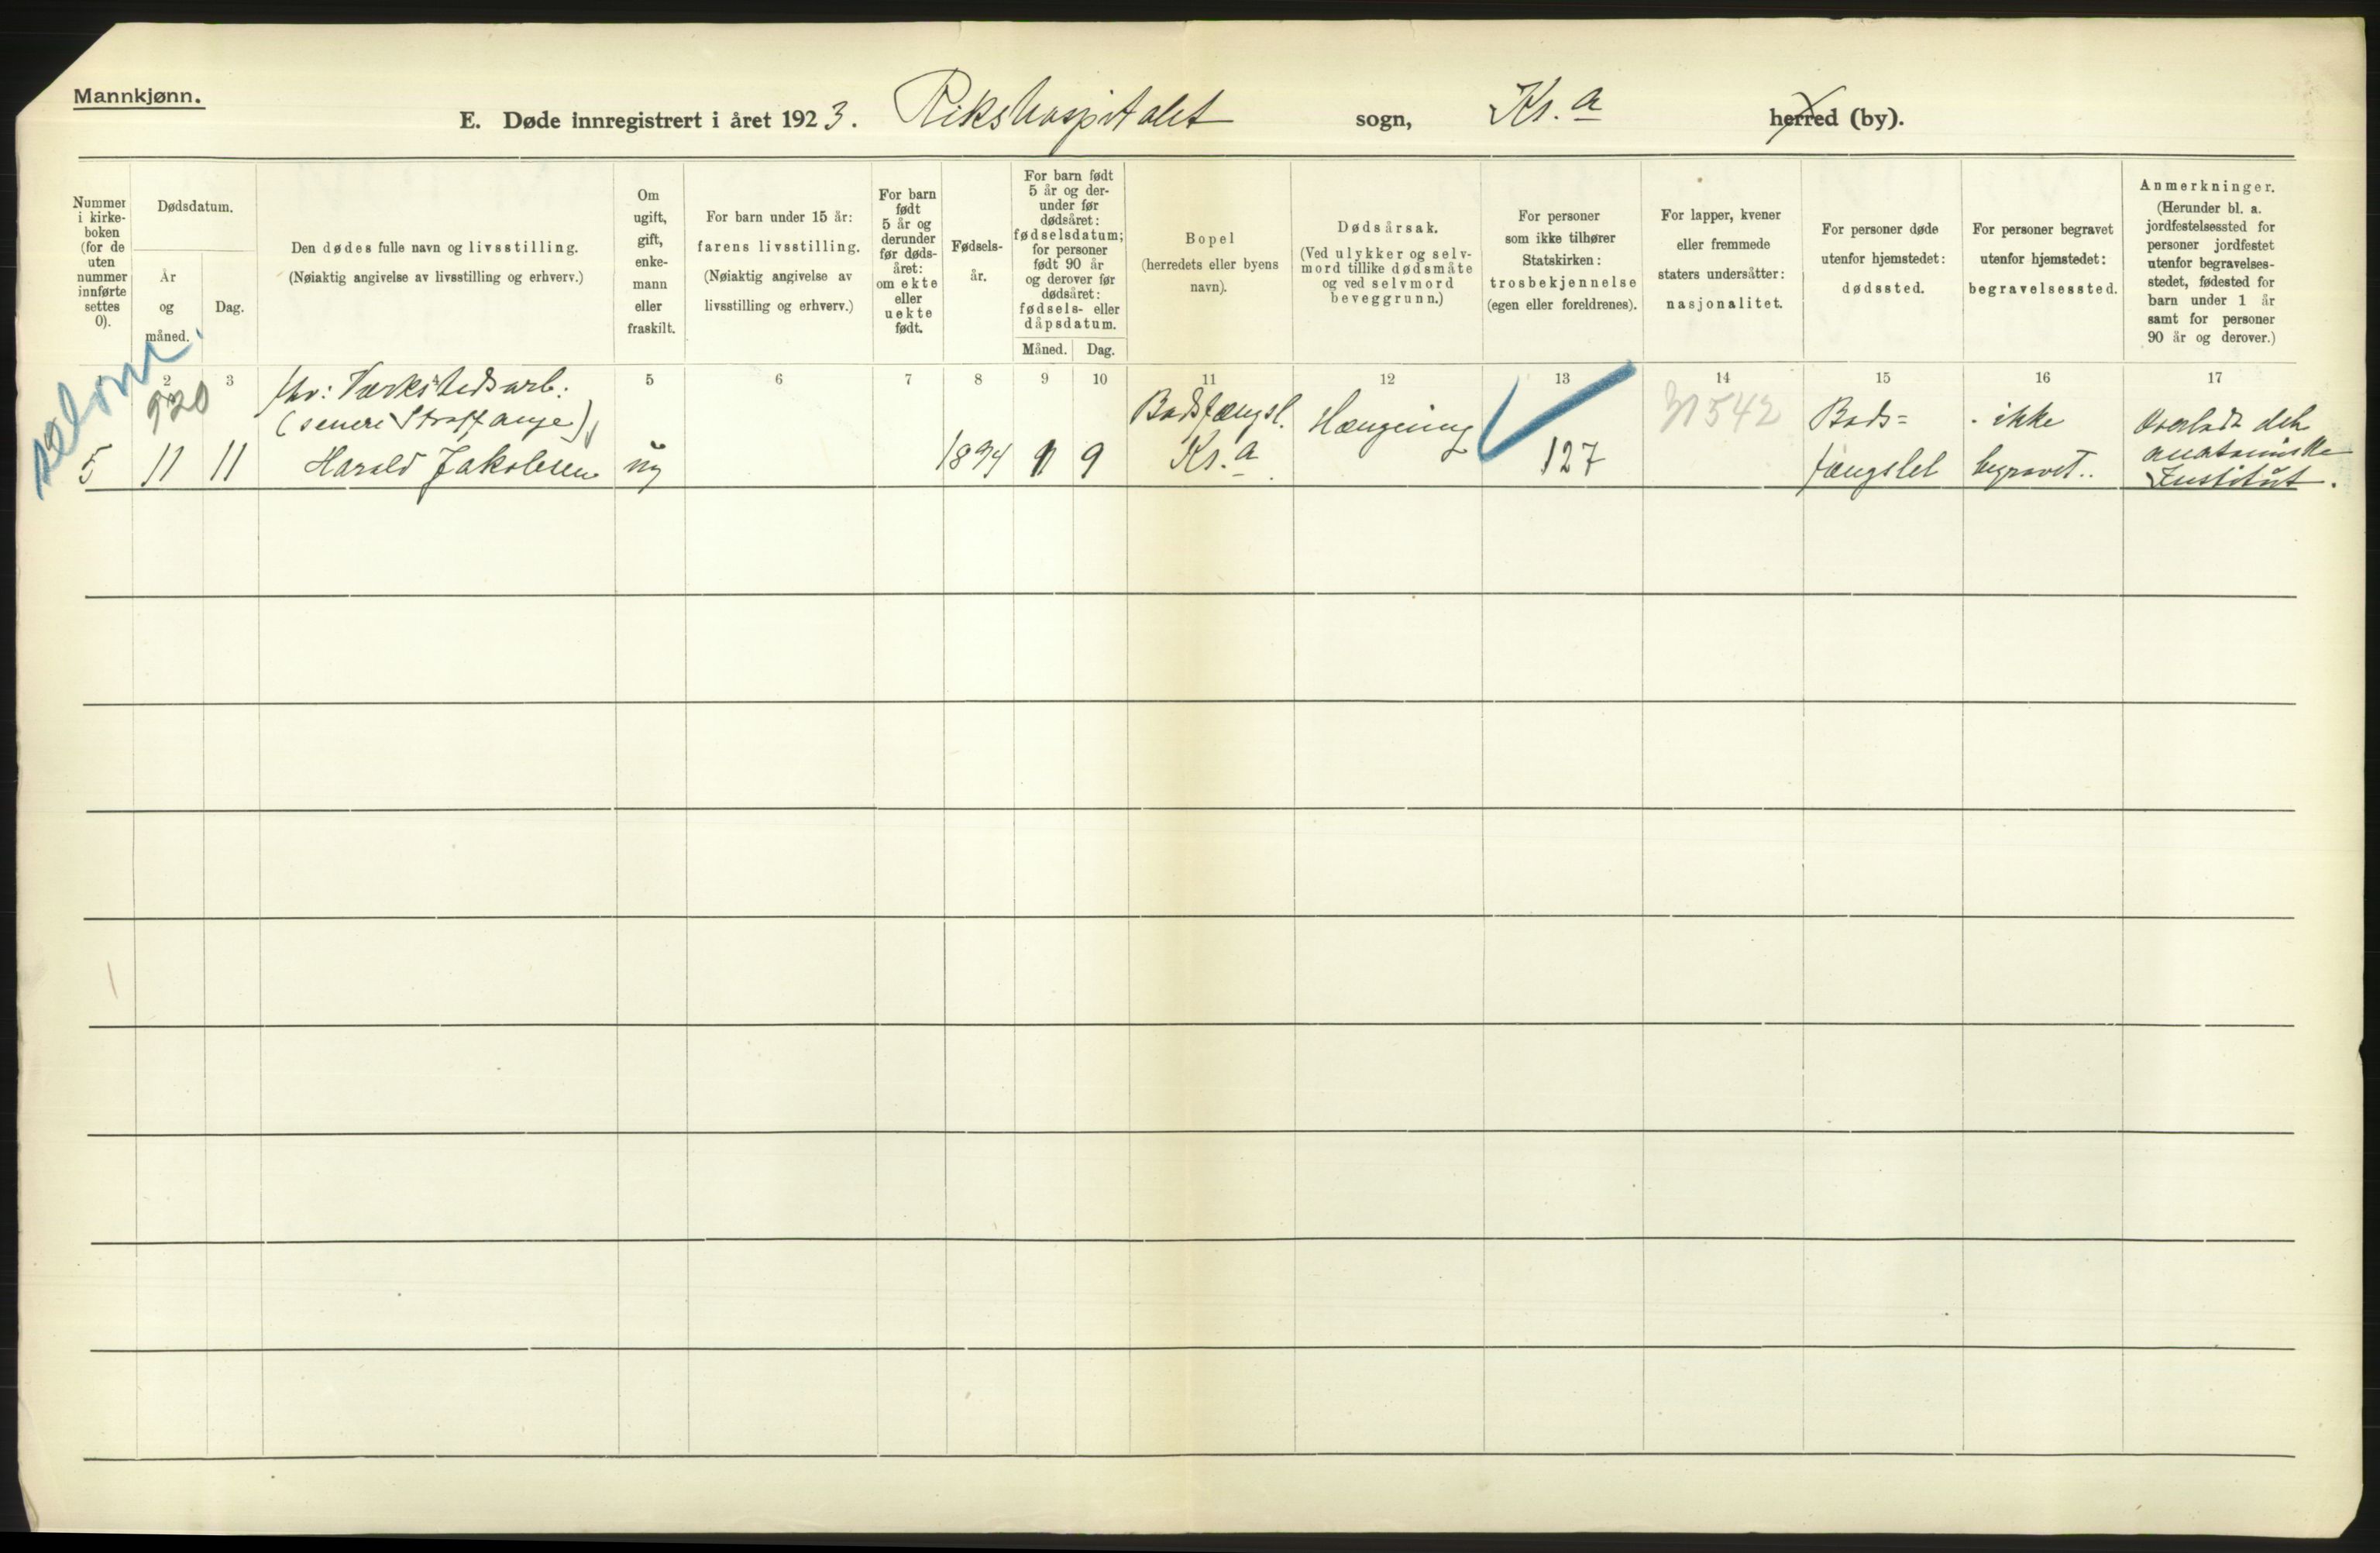 Mannkjønn.
E. Døde innregistrert i året 1923. Rikshospitalet sogn, Kr.a herred (by).
Nummer
i kirke-
boken
(for de
uten
nummer
innførte
settes
0).
Dødsdatum.
År
og
måned.
Dag.
Den dødes fulle navn og livsstilling.
(Nøiaktig angivelse av livsstilling og erhverv.)
Om
ugift,
gift,
enke-
mann
eller
fraskilt.
For barn under 15 år:
farens livsstilling.
(Nøiaktig angivelse av
livsstilling og erhverv.)
For barn
født
5 år og
derunder
før døds-
året:
om ekte
eller
uekte
født.
Fødsels-
år.
For barn født
5 år og der-
under før
dødsåret:
fødselsdatum;
for personer
født 90 år
og derover før
dødsåret:
fødsels- eller
dåpsdatum.
Måned. Dag.
Bopel
(herredets eller byens
navn).
Dødsårsak.
(Ved ulykker og selv-
mord tillike dødsmåte
og ved selvmord
beveggrunn.)
For personer
som ikke tilhører
Statskirken:
trosbekjennelse
(egen eller foreldrenes).
For lapper, kvener
eller fremmede
staters undersåtter:
nasjonalitet.
For personer døde
utenfor hjemstedet:
dødssted.
For personer begravet
utenfor hjemstedet:
begravelsessted.
Anmerkninger.
(Herunder bl. a.
jordfestelsessted for
personer jordfestet
utenfor begravelses-
stedet, fødested for
barn under 1 år
samt for personer
90 år og derover.)
2 3 5 6 7 8 9 10 11 12 13 14 15 16 17
selvm.
920
fhv: Værkstedsarb.
(senere Straffange)
5 11 11 Harald Jakobsen ug 1894 9
Bodsfængsl.
Kr.a
Hængning
127
31542
Bods=
fængslet
ikke
begravet.
Overladt det
anatomiske
Institut.